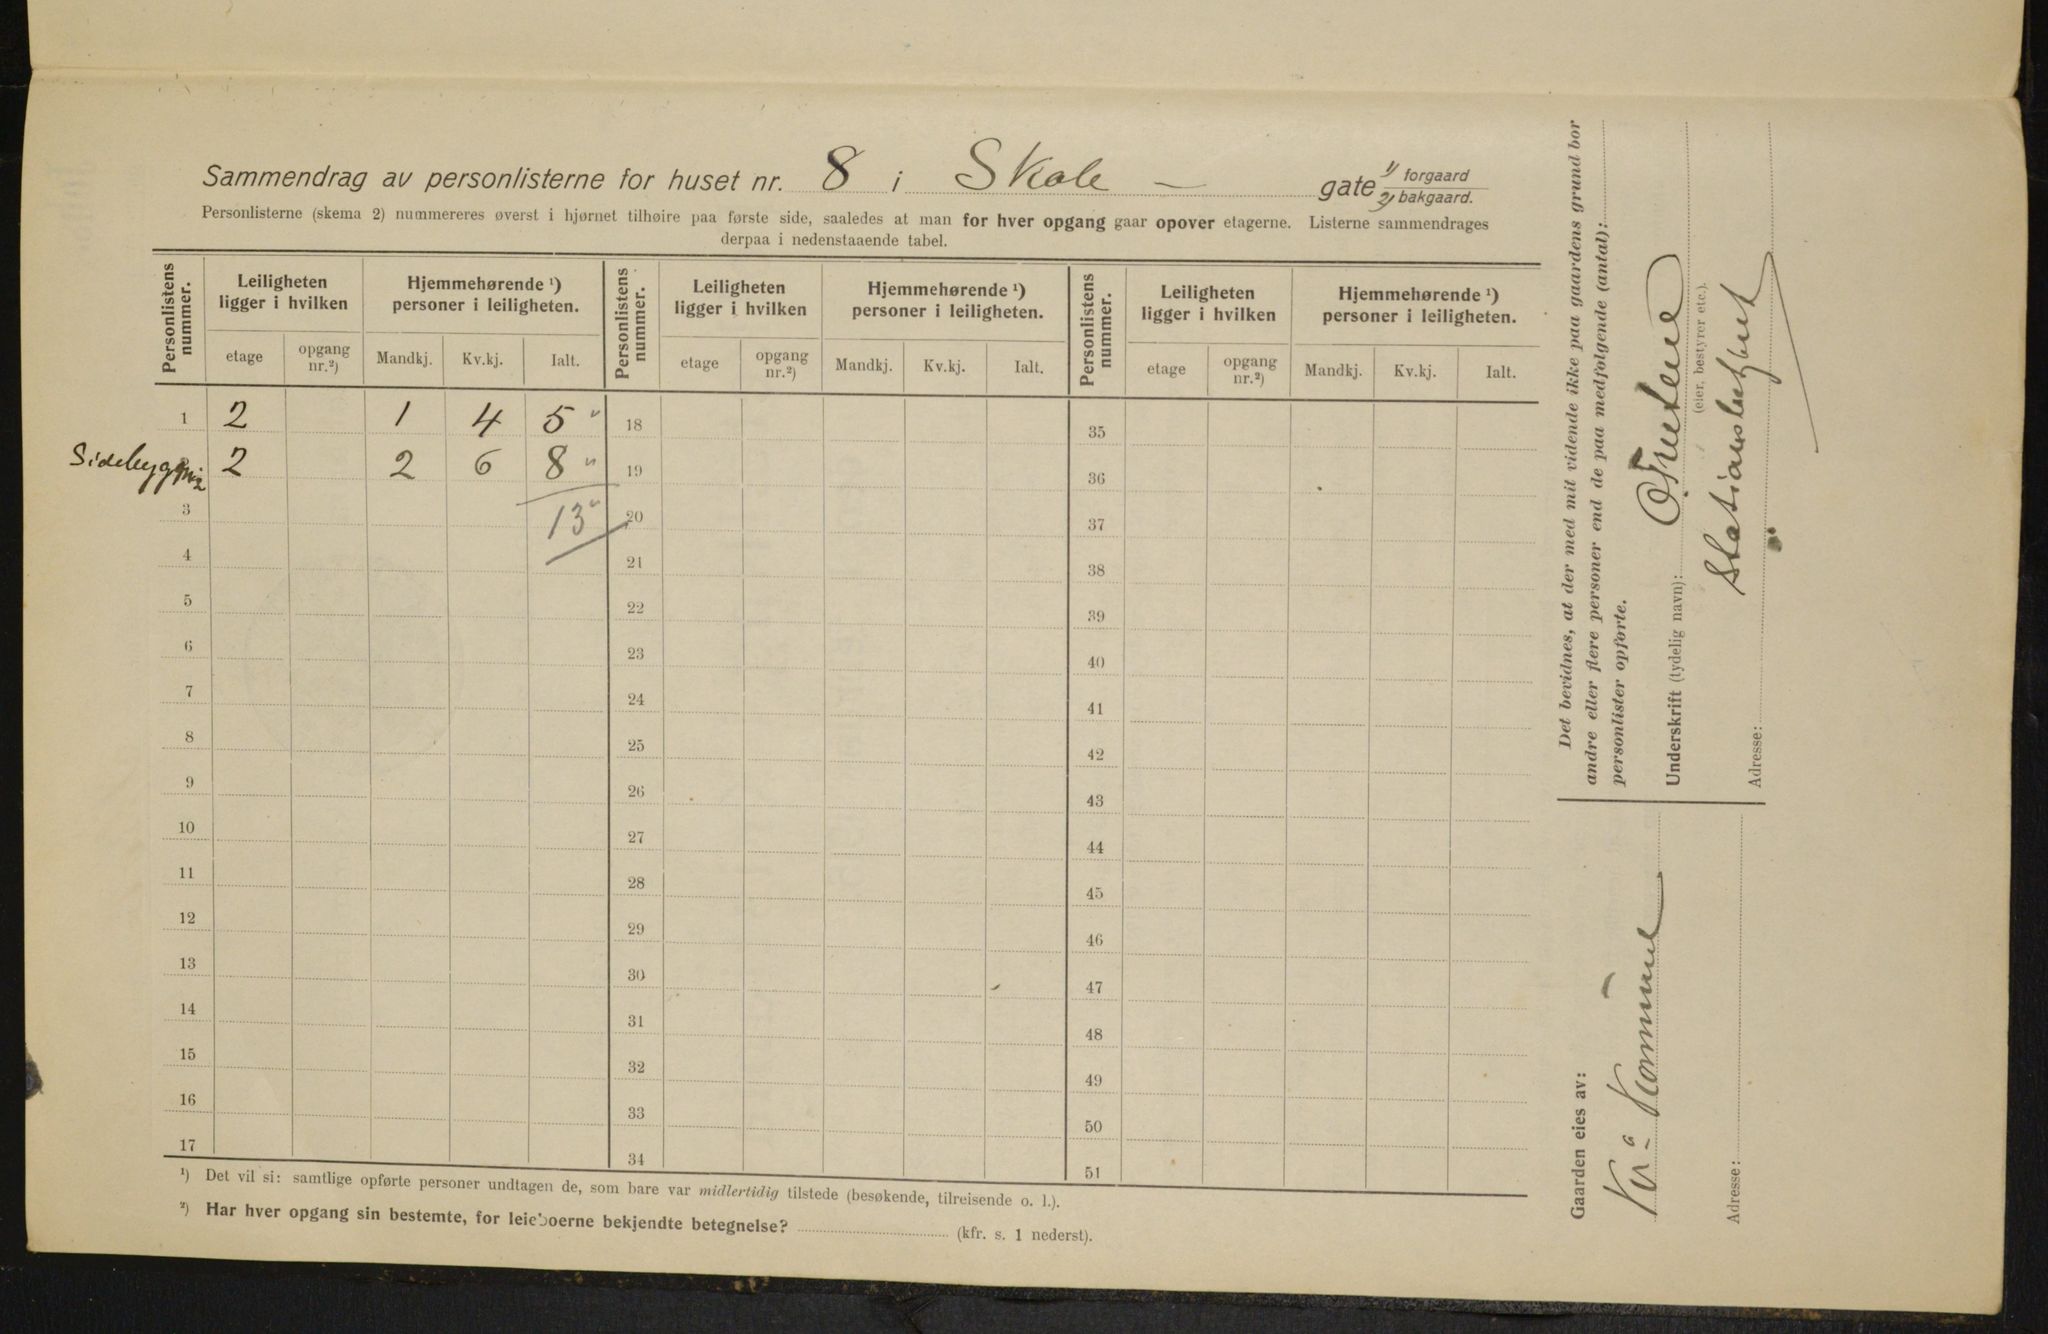 Sammendrag av personlisterne for huset nr. 8 i Skole - gate 1) forgaard 2) bakgaard.
Personlisterne (skema 2) nummereres øverst i hjørnet tilhøire paa første side, saaledes at man for hver opgang gaar opover etagerne. Listerne sammendrages
derpaa i nedenstaaende tabel.
Personlistens nummer. Leiligheten ligger i hvilken Hjemmehørende ¹) personer i leiligheten. Personlistens nummer. Leiligheten ligger i hvilken Hjemmehørende ¹) personer i leiligheten. Personlistens nummer. Leiligheten ligger i hvilken Hjemmehørende ¹) personer i leiligheten.
etage opgang nr.²) Mandkj. Kv.kj. Ialt. etage opgang nr.²) Mandkj. Kv.kj. Ialt. etage opgang nr.²) Mandkj. Kv.kj. Ialt.
1 2 1 4 5 18 35
2 2 6 8 19 36
3 13 20 37
4 21 38
5 22 39
6 23 40
7 24 41
8 25 42
9 26 43
10 27 44
11 28 45
12 29 46
13 30 47
14 31 48
15 32 49
16 33 50
17 34 51
¹) Det vil si: samtlige opførte personer undtagen de, som bare var midlertidig tilstede (besøkende, tilreisende o. l.).
²) Har hver opgang sin bestemte, for leieboerne bekjendte betegnelse? (kfr. s. 1 nederst).
Det bevidnes, at der med mit vidende ikke paa gaardens grund bor
andre eller flere personer end de paa medfølgende (antal):
personlister opførte.
Underskrift (tydelig navn):
(eier, bestyrer etc.).
Adresse:
Gaarden eies av:
Kr.a Kommune
Adresse: